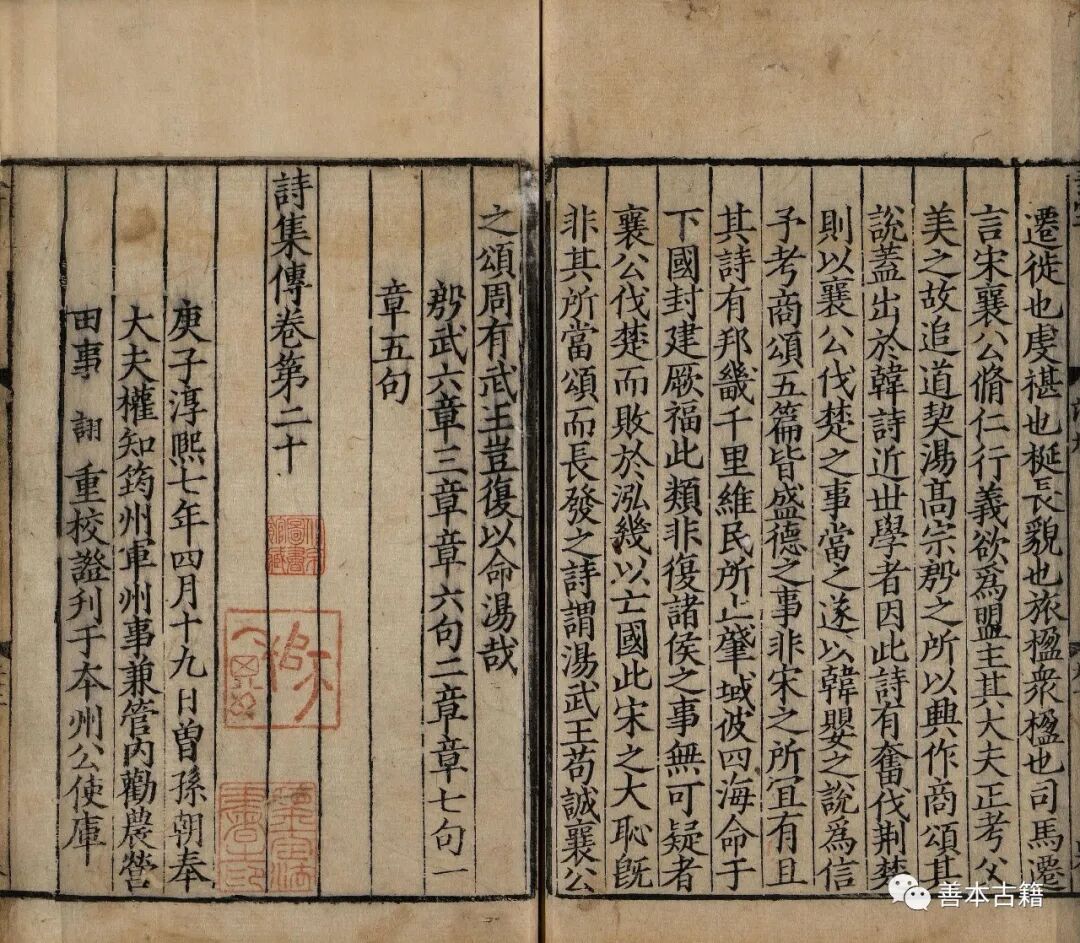 遷徙也虔椹也梴長貌也旅楹衆楹也司馬遷
言宋襄公脩仁行義欲爲盟主其大夫正考父
美之故追道契湯髙宗殷之所以興作商頌其
說蓋出於韓詩近世學者因此詩有奮伐荆楚
則以襄公伐楚之事當之遂以韓嬰之說爲信
予考商頌五篇皆盛德之事非宋之所冝有且
其詩有邦畿千里維民所止肇域彼四海命于
下國封建厥福此類非復諸侯之事無可疑者
襄公伐楚而敗於泓幾以亡國此宋之大恥旣
非其所當頌而長發之詩謂湯武王苟誠襄公
之頌周有武王豈復以命湯哉
殷武六章三章章六句二章章七句一
章五句
詩集傳卷第二十
庚子淳熙七年四月十九日曽孫朝奉
大夫權知筠州軍州事兼管内勸農營
田事 詡 重校證刊于本州公使庫
善本古籍